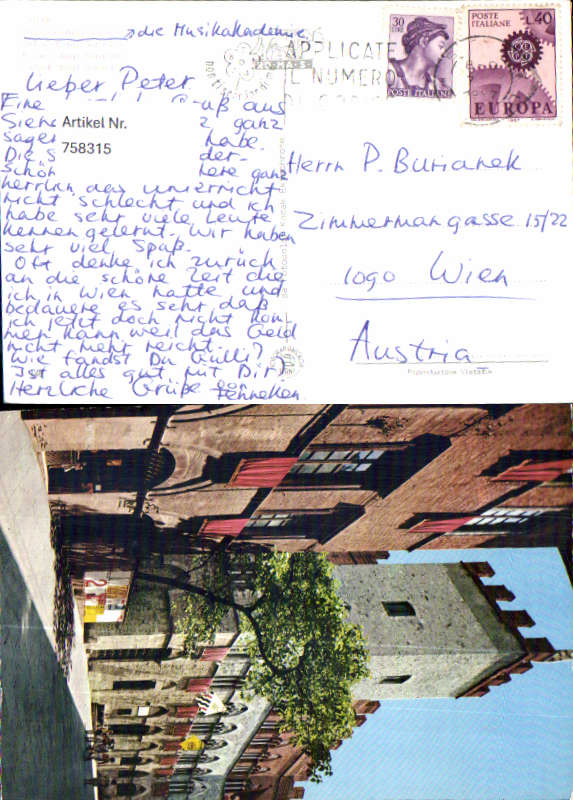 die Musikakademie
Lieber Peter
Eine Gruß aus
Siena ganz
sagen habe.
Artikel Nr.
758315
Die S der-
schön ganz
herrlich das unterricht
nicht schlecht und ich
habe sehr viele Leute
kennengelernt. Wir haben
sehr viel Spaß.
Oft denke ich zurück
an die schöne Zeit die
ich in Wien hatte und
bedauere es sehr daß
ich jetzt doch nicht kom
men kann weil das Geld
nicht mehr reicht.
Wie fandst Du Gilli?
Ist alles gut mit Dir?
Herzliche Grüße von
Henneken
APPLICATE
IL NUMERO
30
LIRE
POSTE ITALIANE
POSTE
ITALIANE
L.40
EUROPA
Herrn P. Burianek
Zimmermangasse 15/22
1090 Wien
Austria
Riproduzione Vietata